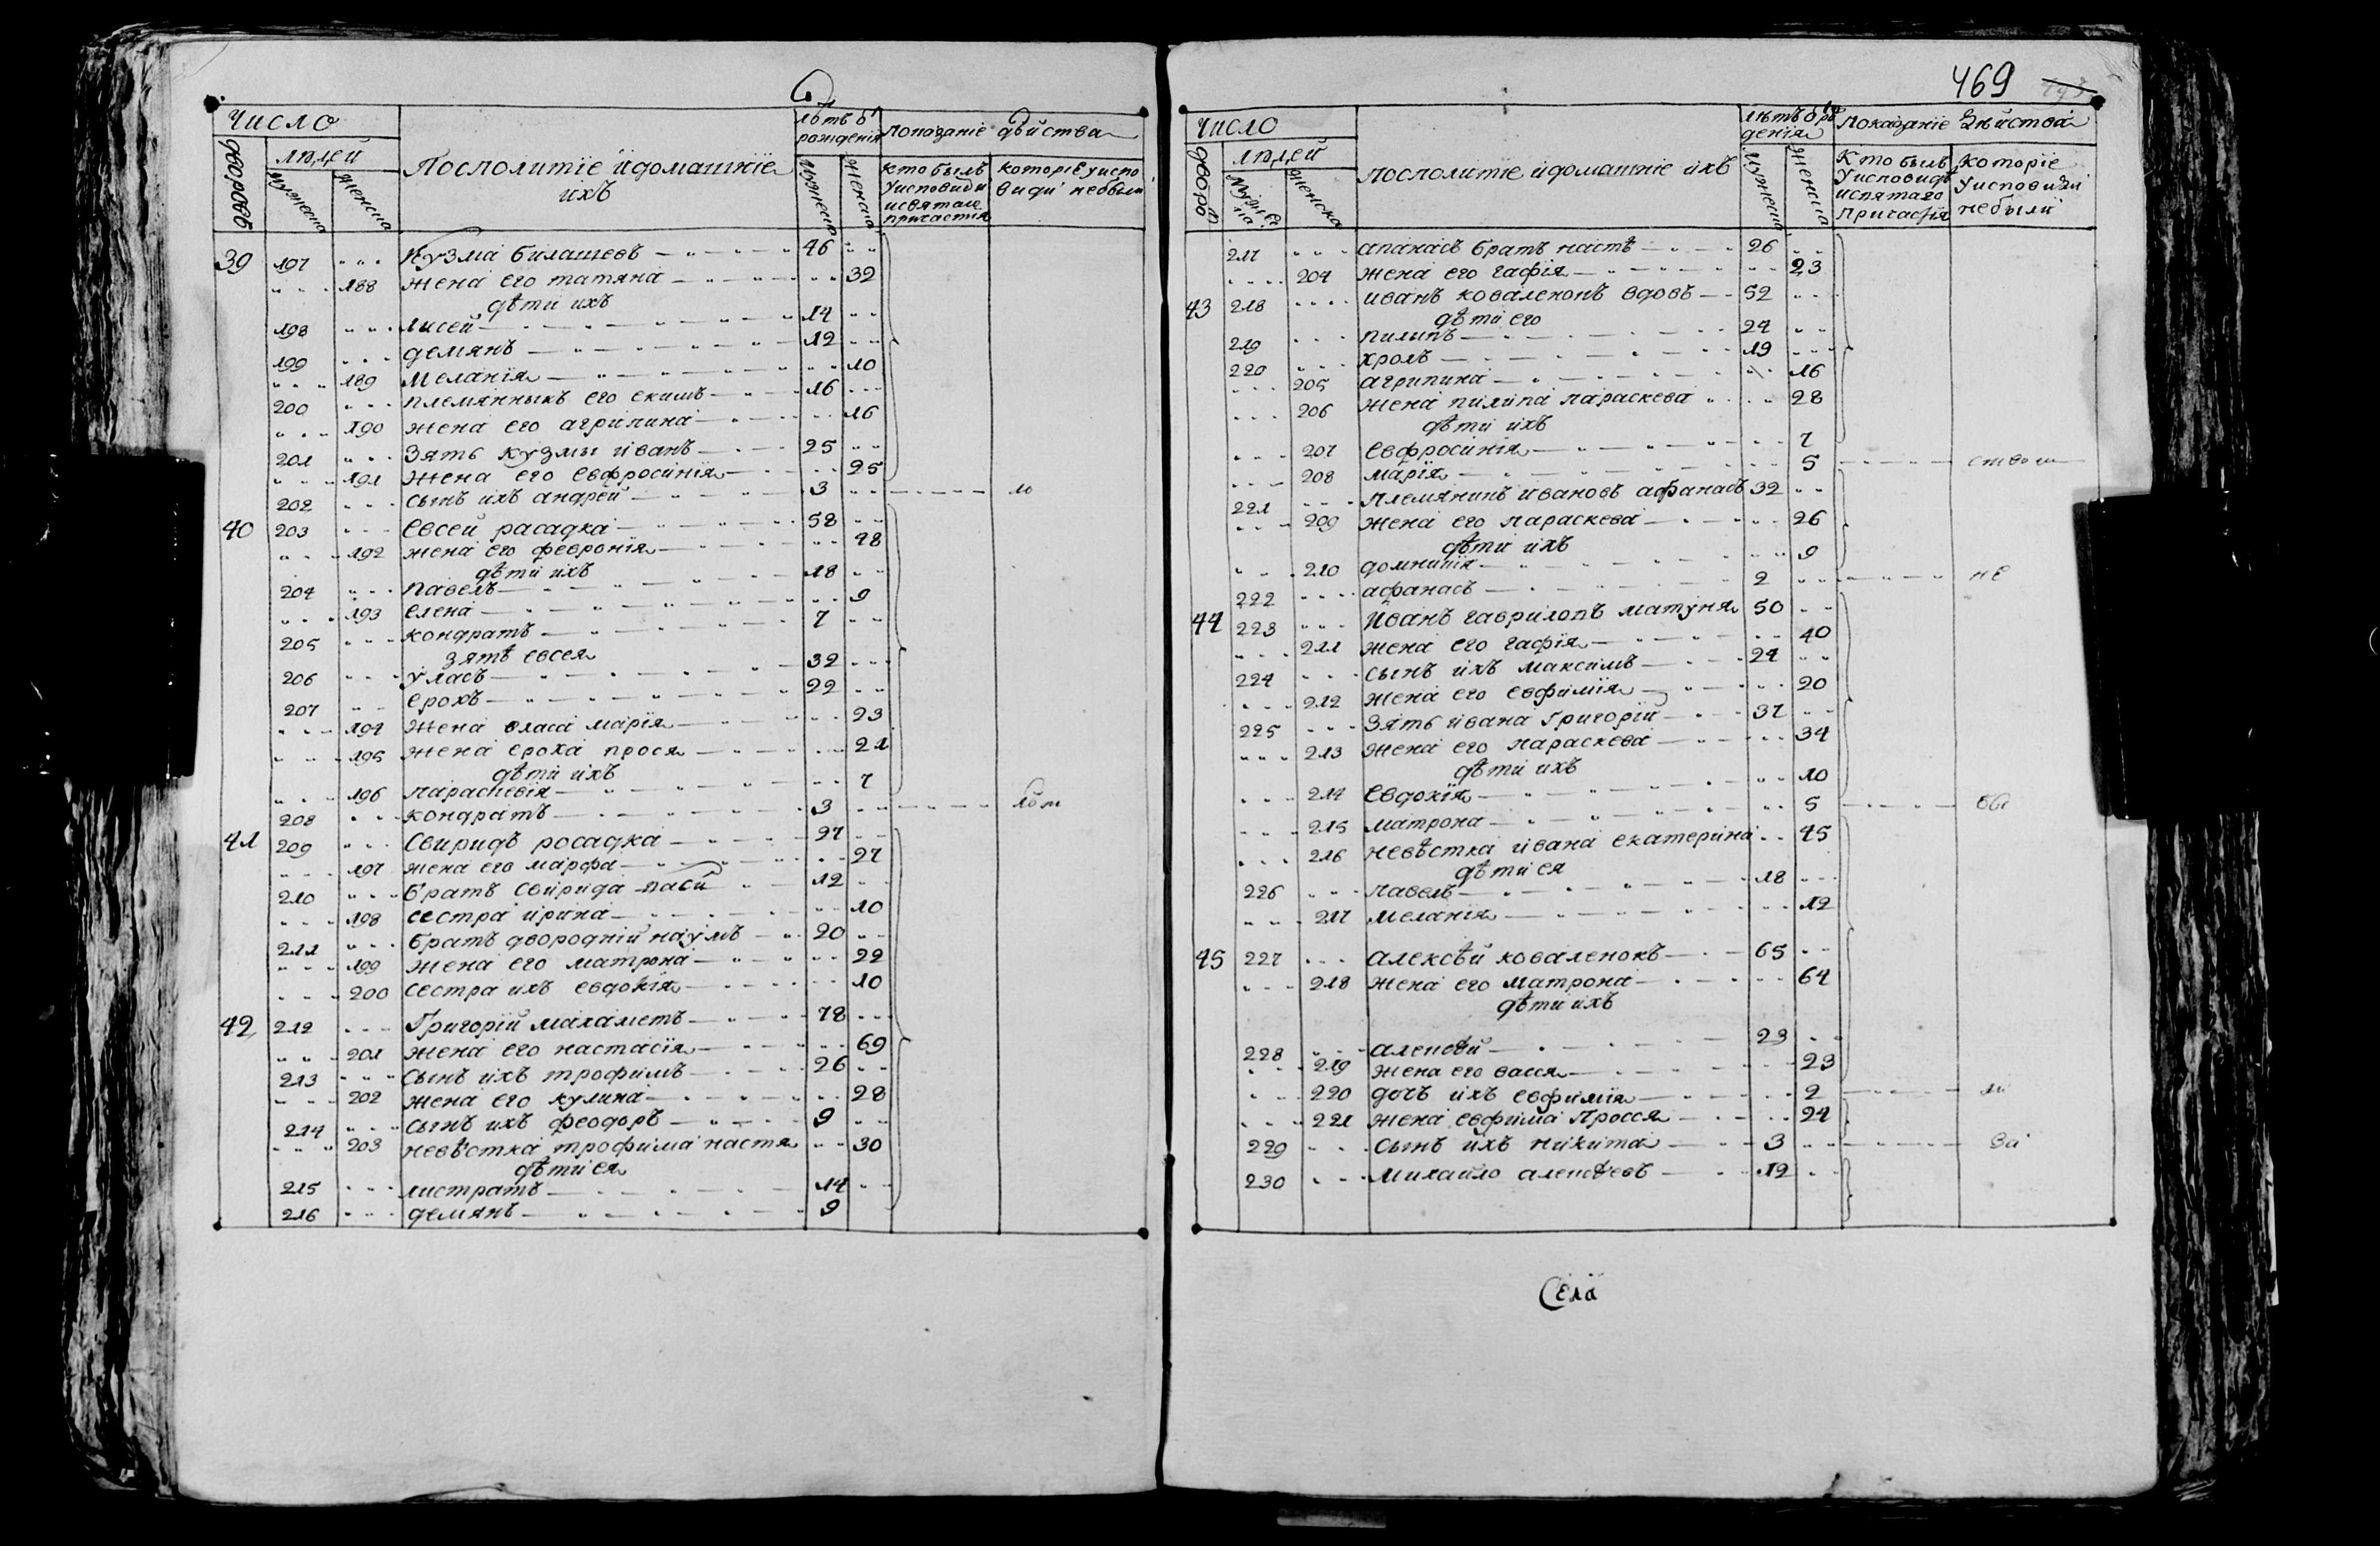 Число
лѣтъ ѿ рожденія
показаніе дѣйства
дворовъ
людей
мужеска
женска
Посполитіе и домашніе ихъ
мужеска
женска
кто былъ у исповиди и святаго причастія
которіе у исповиди не были
39 197 Кузма билашевъ 46
188 жена его татяна 32
дѣти ихъ
198 лисей 14
199 демянъ 12
189 Меланія 10
200 племянныкъ его екимъ 16
190 жена его агрипина 16
201 Зять кузмы иванъ 25
191 жена его Евфросинія 25
202 сынъ ихъ андрей 3
40 203 Евсей расадка 58
192 жена его февронія 48
дѣти ихъ
204 Павелъ 18
193 Елена 9
205 кондратъ 7
зятѣ евсея
206 Уласъ 32
207 Ерохъ 22
194 Жена власа марія 23
195 жена ероха прося 21
дѣти ихъ
196 параскевія 7
208 кондратъ 3
41 209 Свиридъ росадка 27
197 жена его марфа 27
210 братъ свирида 12
198 сестра ирина 10
211 братъ двородній наумъ 20
199 жена его матрона 22
200 сестра ихъ евдокія 10
42 212 Григорій махаметъ 78
201 жена его настасія 69
213 Сынъ ихъ трофимъ 26
202 жена его кулина 28
214 сынъ ихъ феодоръ 9
203 невѣстка трофима настя 30
дѣти ея
215 листратъ 14
216 демянъ 9
469
Число
лѣтъ ѿ рожденія
показаніе дѣйства
дворовъ
людей
мужеска
женска
посполитіе и домашніе ихъ
мужеска
женска
Кто былъ у исповиди и святаго причастія
которіе у исповиди не были
217 апанасъ братъ настѣ 26
204 жена его гафія 23
43 218 иванъ коваленокъ вдовъ 52
дѣти его
219 пилипъ 24
220 хролъ 19
205 агрипина 16
206 жена пилипа параскева 28
дѣти ихъ
207 Евфросинія 7
208 марія 5
221 племяникъ ивановъ афанасъ 32
209 жена его параскева 26
дѣти ихъ
210 домникія 9
222 афанасъ 2 не
44 223 Иванъ гавриловъ матуня 50
211 жена его гафія 40
224 сынъ ихъ максимъ 24
212 жена его евфимія 20
225 Зять ивана Григорій 37
213 жена его параскева 34
дѣти ихъ
214 Евдокія 10
215 матрона 5
216 невѣстка ивана екатерина 45
дѣти ея
226 павелъ 18
217 меланія 12
45 227 алексѣй коваленокъ 65
218 жена его матрона 64
дѣти ихъ
228 алексѣй 23
219 жена его васся 23
220 дочъ ихъ евфимія 2
221 жена евфима Прося 24
229 сынъ ихъ никита 3
230 михаило алексѣевъ 12
Села